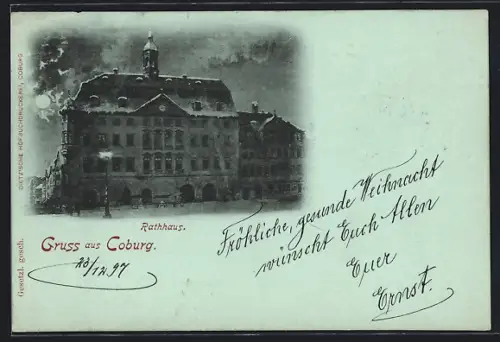 DIETZ'SCHE HOFBUCHDRUCKEREI, COBURG.
Gesetzl. gesch.
Rathhaus.
Gruss aus Coburg.
23/12 97
Fröhliche, gesunde Weihnacht
wünscht Euch Allen
Euer
Ernst.